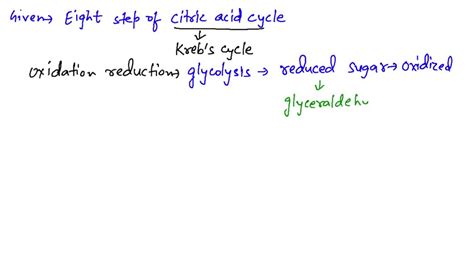 Given → Eight step of citric acid cycle
↓
Kreb's cycle
oxidation reduction → glycolysis → reduced sugar → oxidized
↓
glyceraldeh